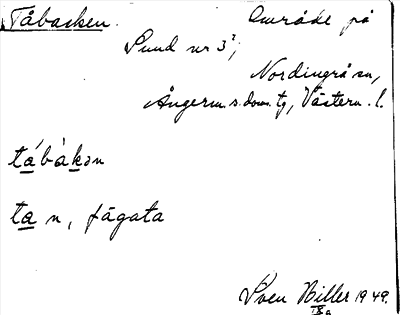 Tåbacken. Område på
Sund nr 3²,
Nordingrå sn,
Ångerm. s. dom. tg, Västern. l.
tábàkən
ta n, fågata
Sven Biller 1949.
IXa